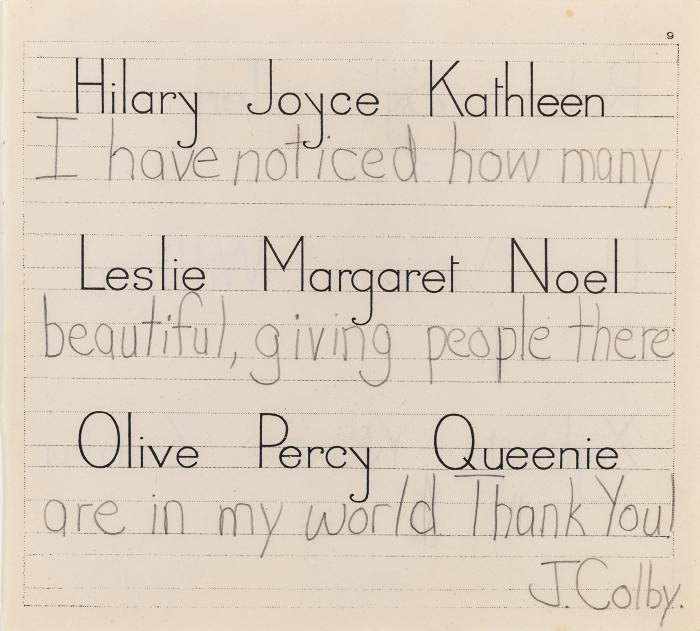 9
Hilary Joyce Kathleen
I have noticed how many
Leslie Margaret Noel
beautiful, giving people there
Olive Percy Queenie
are in my world Thank You!
J. Colby.